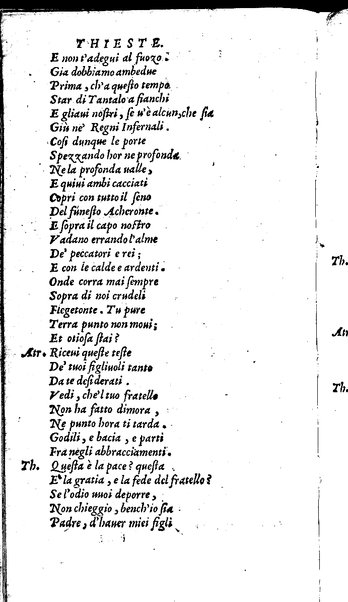 THIESTE.
E non t'adegui al fuozo :
Gia dobbiamo ambedue
Prima, ch'a questo tempo
Star di Tantalo a fianchi
E gliaui nostri, se u'è alcun, che sia
Giù ne' Regni Infernali.
Cosi dunque le porte
Spezzando hor ne profonda
Ne la profonda ualle,
E quiui ambi cacciati
Copri con tutto il seno
Del funesto Acheronte.
E sopra il capo nostro
Vadano errando l'alme
De' peccatori e rei;
E con le calde e ardenti.
Onde corra mai sempre
Sopra di noi crudeli
Flegetonte. Tu pure
Terra punto non moui;
Et otiosa stai?
Atr. Riceui queste teste
De' tuoi figliuoli tanto
Da te desiderati.
Vedi, che'l tuo fratello
Non ha fatto dimora,
Ne punto hora ti tarda.
Godili, e bacia, e parti
Fra negli abbracciamenti.
Th. Questa è la pace? questa
E' la gratia, e la fede del fratello?
Se l'odio uuoi deporre,
Non chieggio, bench'io sia
Padre, d'hauer miei figli
Th.
Atr
Th.